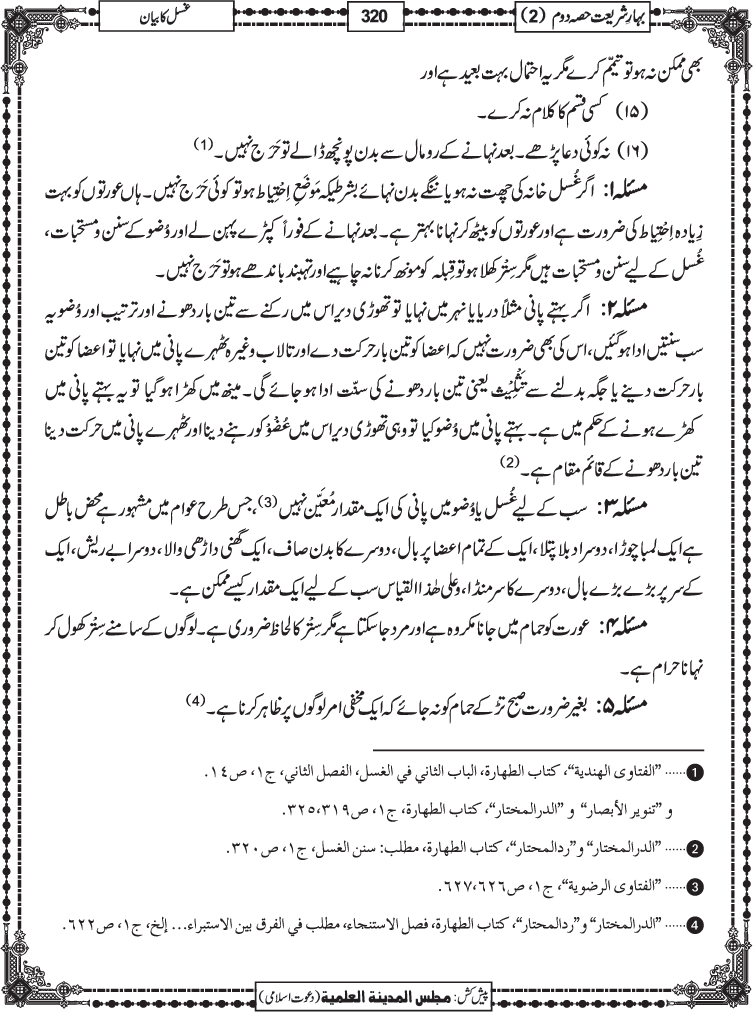 بہارِ شریعت حصہ دوم (2)
320
غسل کا بیان
بھی ممکن نہ ہو تو تیمّم کرے مگر یہ احتمال بہت بعید ہے اور
(۱۵) کسی قسم کا کلام نہ کرے۔
(۱۶) نہ کوئی دعا پڑھے۔ بعد نہانے کے رومال سے بدن پونچھ ڈالے تو حَرَج نہیں۔ (1)
مسئلہ ۱: اگر غُسل خانہ کی چھت نہ ہو یا ننگے بدن نہائے بشرطیکہ مَوضَعِ اِحْتِیاط ہو تو کوئی حَرَج نہیں۔ ہاں عورتوں کو بہت
زیادہ اِحْتِیاط کی ضرورت ہے اور عورتوں کو بیٹھ کر نہانا بہتر ہے۔ بعد نہانے کے فوراً کپڑے پہن لے اور وُضو کے سنن و مستحبات،
غُسل کے لیے سنن و مستحبات ہیں مگر سِتْر کھلا ہو تو قبلہ کو مونھ کرنا نہ چاہیے اور تہبند باندھے ہو تو حَرَج نہیں۔
مسئلہ ۲: اگر بہتے پانی مثلاً دریا یا نہر میں نہایا تو تھوڑی دیر اس میں رکنے سے تین بار دھونے اور ترتیب اور وُضو یہ
سب سنتیں ادا ہو گئیں، اس کی بھی ضرورت نہیں کہ اعضا کو تین بار حرکت دے اور تالاب وغیرہ ٹھہرے پانی میں نہایا تو اعضا کو تین
بار حرکت دینے یا جگہ بدلنے سے تَثْلِیْث یعنی تین بار دھونے کی سنّت ادا ہو جائے گی۔ مینھ میں کھڑا ہو گیا تو یہ بہتے پانی میں
کھڑے ہونے کے حکم میں ہے۔ بہتے پانی میں وُضو کیا تو وہی تھوڑی دیر اس میں عُضْوْ کو رہنے دینا اور ٹھہرے پانی میں حرکت دینا
تین بار دھونے کے قائم مقام ہے۔ (2)
مسئلہ ۳: سب کے لیے غُسل یا وُضو میں پانی کی ایک مقدار مُعَیَّن نہیں (3)، جس طرح عوام میں مشہور ہے محض باطل
ہے ایک لمبا چوڑا، دوسرا دبلا پتلا، ایک کے تمام اعضا پر بال، دوسرے کا بدن صاف، ایک گھنی داڑھی والا، دوسرا بے ریش، ایک
کے سر پر بڑے بڑے بال، دوسرے کا سر منڈا، وعلٰی ھٰذا القیاس سب کے لیے ایک مقدار کیسے ممکن ہے۔
مسئلہ ۴: عورت کو حمام میں جانا مکروہ ہے اور مرد جا سکتا ہے مگر سِتْر کا لحاظ ضروری ہے۔ لوگوں کے سامنے سِتْر کھول کر
نہانا حرام ہے۔
مسئلہ ۵: بغیر ضرورت صبح تڑکے حمام کو نہ جائے کہ ایک مخفی امر لوگوں پر ظاہر کرنا ہے۔ (4)
1 ...... "الفتاوى الهندية"، كتاب الطهارة، الباب الثاني في الغسل، الفصل الثاني، ج١، ص١٤.
و "تنوير الأبصار" و "الدرالمختار"، كتاب الطهارة، ج١، ص٣١٩،٣٢٥.
2 ...... "الدرالمختار" و"ردالمحتار"، كتاب الطهارة، مطلب: سنن الغسل، ج١، ص٣٢٠.
3 ...... "الفتاوى الرضوية"، ج١، ص٦٢٦،٦٢٧.
4 ...... "الدرالمختار" و"ردالمحتار"، كتاب الطهارة، فصل الاستنجاء، مطلب في الفرق بين الاستبراء... إلخ، ج١، ص٦٢٢.
پیش کش: مجلس المدینۃ العلمیۃ (دعوتِ اسلامی)